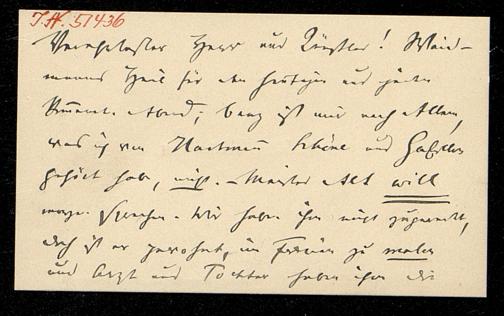 I.N. 51436
Verehrtester Herr und Künstler! Waid-
manns Heil für den heutigen und
Abend; bang ist mir nach Allem,
was ich von Hartmann Schöne und
gehört habe, nicht. – Meister Alt will
morgen sprechen. Wir haben ihm nicht zugeredet,
doch ist er gewohnt, im Freien zu malen
und Arzt und Tochter haben ihm die